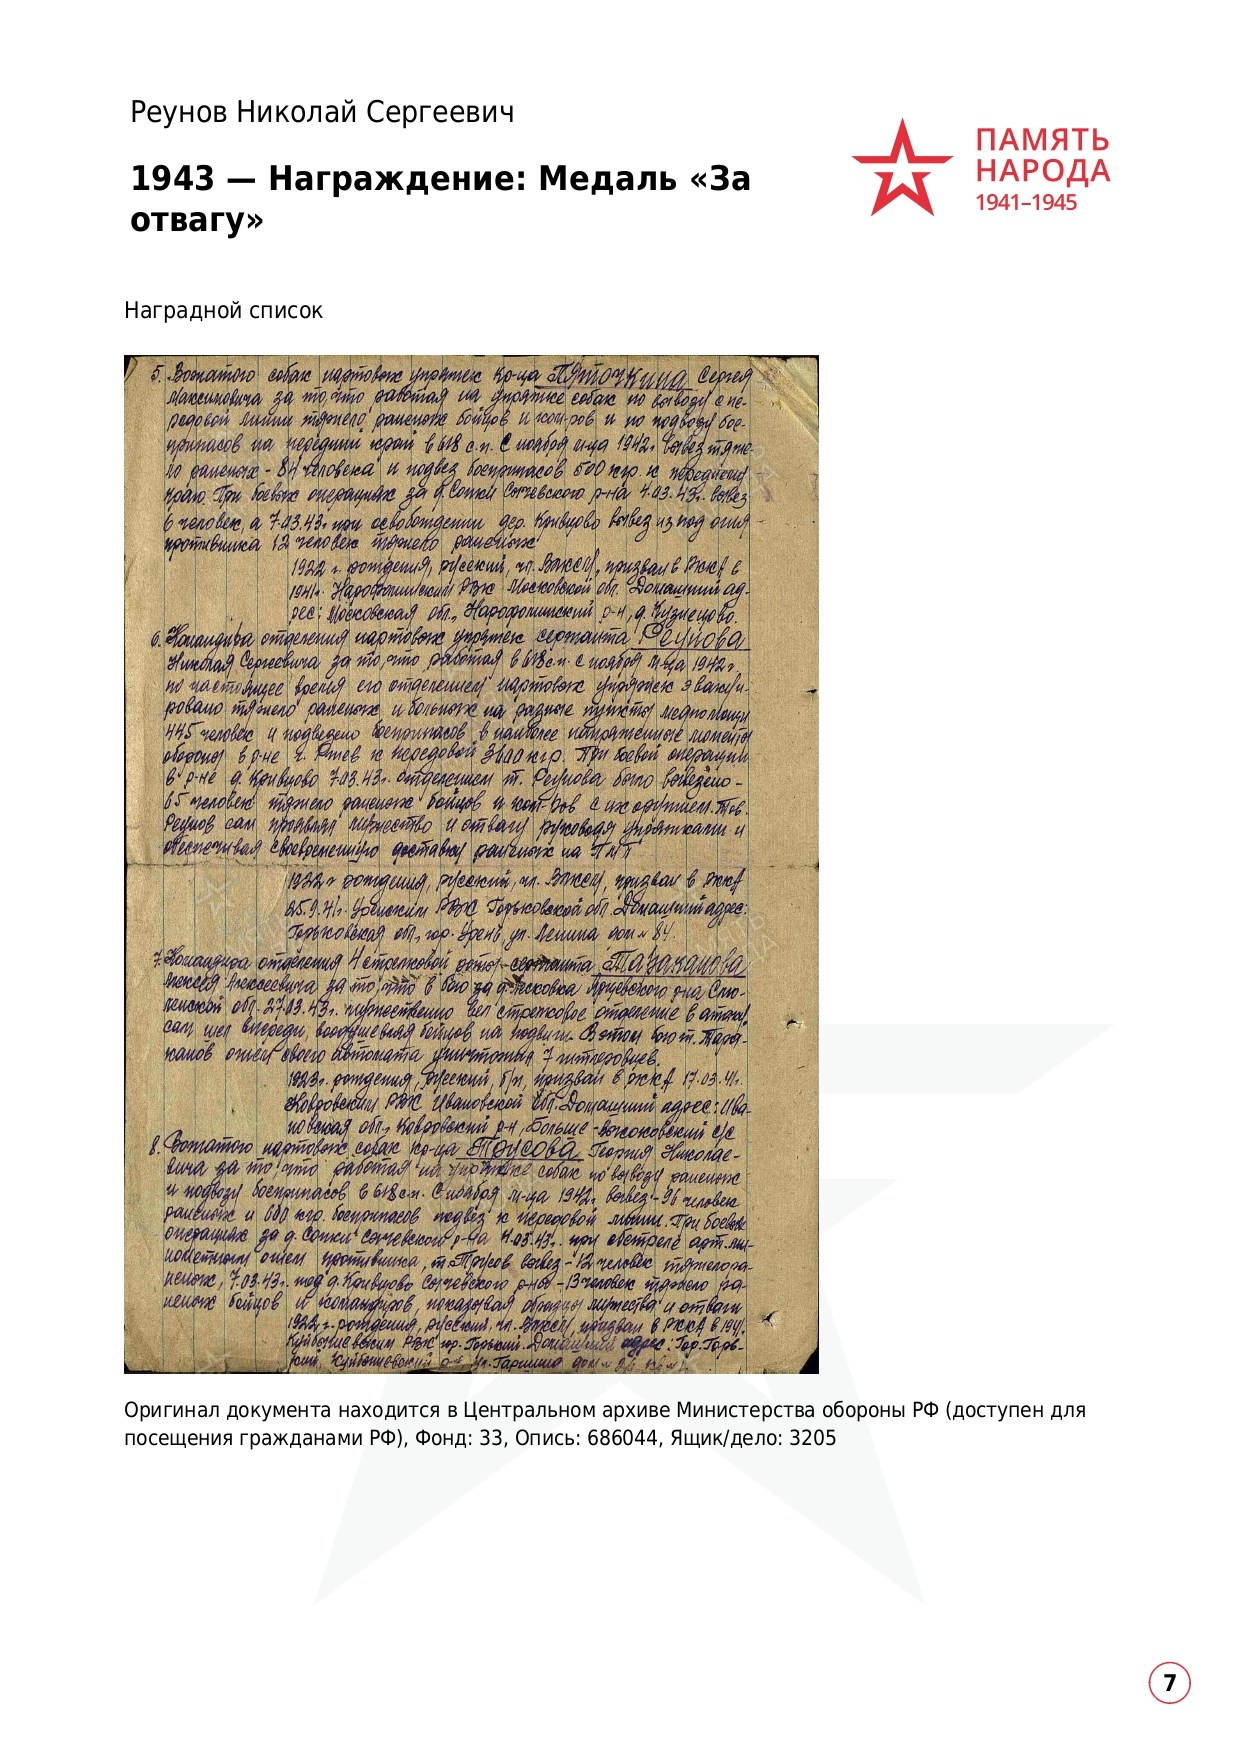 Реунов Николай Сергеевич
1943 — Награждение: Медаль «За
отвагу»
ПАМЯТЬ
НАРОДА
1941–1945
Наградной список
5. Вожатого собак нартовых упряжек кр-ца Пяточкина Сергея
Максимовича за то, что работая на упряжке собак по вывозу с пе-
редовой линии тяжело раненых бойцов и ком-ров и по подвозу бое-
припасов на передний край в 618 с.п. С ноября м-ца 1942г. вывез тяже-
ло раненых - 84 человека и подвез боеприпасов 500 кгр. к переднему
краю. При боевых операциях за д. Сопки Сычевского р-на 4.03.43г. вывез
6 человек, а 7.03.43г. при освобождении дер. Кривцово вывез из под огня
противника 12 человек тяжело раненых
1922 г. рождения, русский, чл. ВЛКСМ, призван в РККА в
1941г. Нарофоминским РВК Московской обл. Домашний ад-
рес: Московская обл., Нарофоминский р-н, д. Кузнецово.
6. Командира отделения нартовых упряжек сержанта Реунова
Николая Сергеевича за то, что работая в 618 с.п. с ноября м-ца 1942г.
по настоящее время его отделением нартовых упряжек эвакуи-
ровано тяжело раненых и больных на разные пункты медпомощи
445 человек и подвезено боеприпасов в наиболее напряженные моменты
обороны в р-не г. Ржев к передовой 3600 кгр. При боевой операции
в р-не д. Кривцово 7.03.43г. отделением т. Реунова было вывезено -
65 человек тяжело раненых бойцов и ком-ров с их оружием. Тов.
Реунов сам проявлял мужество и отвагу руководя упряжками и
обеспечивая своевременную доставку раненых на ПМП
1922г рождения, русский, чл. ВЛКСМ, призван в РККА
25.9.41г. Уренским РВК Горьковской обл. Домашний адрес:
Горьковская обл., гор. Урень, ул. Ленина дом № 84.
7. Командира отделения 4 стрелковой роты сержанта Тараканова
Алексея Алексеевича за то, что в бою за д. Лесковка Ярцевского р-на Смо-
ленской обл. 27.03.43г. мужественно вел стрелковое отделение в атаку,
сам шел впереди, воодушевляя бойцов на подвиги. В этом бою т. Тара-
канов огнем своего автомата уничтожил 7 гитлеровцев.
1923г. рождения, русский, б/п, призван в РККА 17.03.41г.
Ковровским РВК Ивановской обл. Домашний адрес: Ива-
новская обл., Ковровский р-н, Больше-Высоковский с/с
8. Вожатого нартовых собак кр-ца Трусова Георгия Николае-
вича за то что работая на упряжке собак по вывозу раненых
и подвозу боеприпасов в 618 с.п. С ноября м-ца 1942г. вывез - 96 человек
раненых и 600 кгр. боеприпасов подвез к передовой линии. При боевых
операциях за д. Сопки Сычевского р-на 4.03.43г. при обстреле арт. ми-
нометным огнем противника, т. Трусов вывез - 12 человек тяжелора-
неных, 7.03.43г. под д. Кривцово Сычевского р-на - 13 человек тяжело ра-
неных бойцов и командиров, показывая образцы мужества и отваги
1922г. рождения, русский, чл. ВЛКСМ, призван в РККА в 1941г.
Куйбышевским РВК гор. Горький. Домашний адрес: Гор. Горь-
кий, Куйбышевский р-н, ул. дом №
Оригинал документа находится в Центральном архиве Министерства обороны РФ (доступен для
посещения гражданами РФ), Фонд: 33, Опись: 686044, Ящик/дело: 3205
7